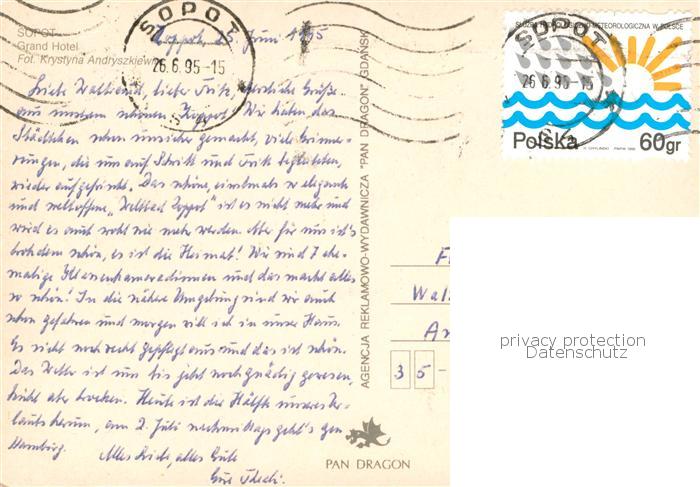 SOPOT
Grand Hotel
Fot. Krystyna Andryszkiewicz
SOPOT
26.6.95-15
Zoppot, 25. Juni 1995
Liebe Waltraud, lieber Fritz, herzliche Grüße
aus unserem schönen Zoppot! Wir haben das
Städtchen schon unsicher gemacht, viele Erinne-
rungen, die uns auf Schritt und Tritt begleiteten,
wieder aufgefrischt. Das schöne, einstmals so elegante
und weltoffene "Weltbad Zoppot" ist es nicht mehr und
wird es auch wohl nie mehr werden. Aber für uns ist's
trotzdem schön, es ist die Heimat! Wir sind 7 ehe-
malige Klassenkameradinnen und das macht alles
so schön! In die nähere Umgebung sind wir auch
schon gefahren und morgen will ich in unser Haus.
Es sieht noch recht gepflegt aus und das ist schön.
Das Wetter ist uns bis jetzt noch gnädig gewesen,
kühl aber trocken. Heute ist die Hälfte unseres Ur-
laubs herum, am 2. Juli nachmittags geht's gen
Hamburg.
Alles Liebe, alles Gute
Eure
AGENCJA REKLAMOWO-WYDAWNICZA "PAN DRAGON" GDAŃSK
PAN DRAGON
SŁUŻBA HYDROLOGICZNO-METEOROLOGICZNA W POLSCE
SOPOT
26.6.95-15
Polska 60gr
F
Wal
An
35-
privacy protection
Datenschutz